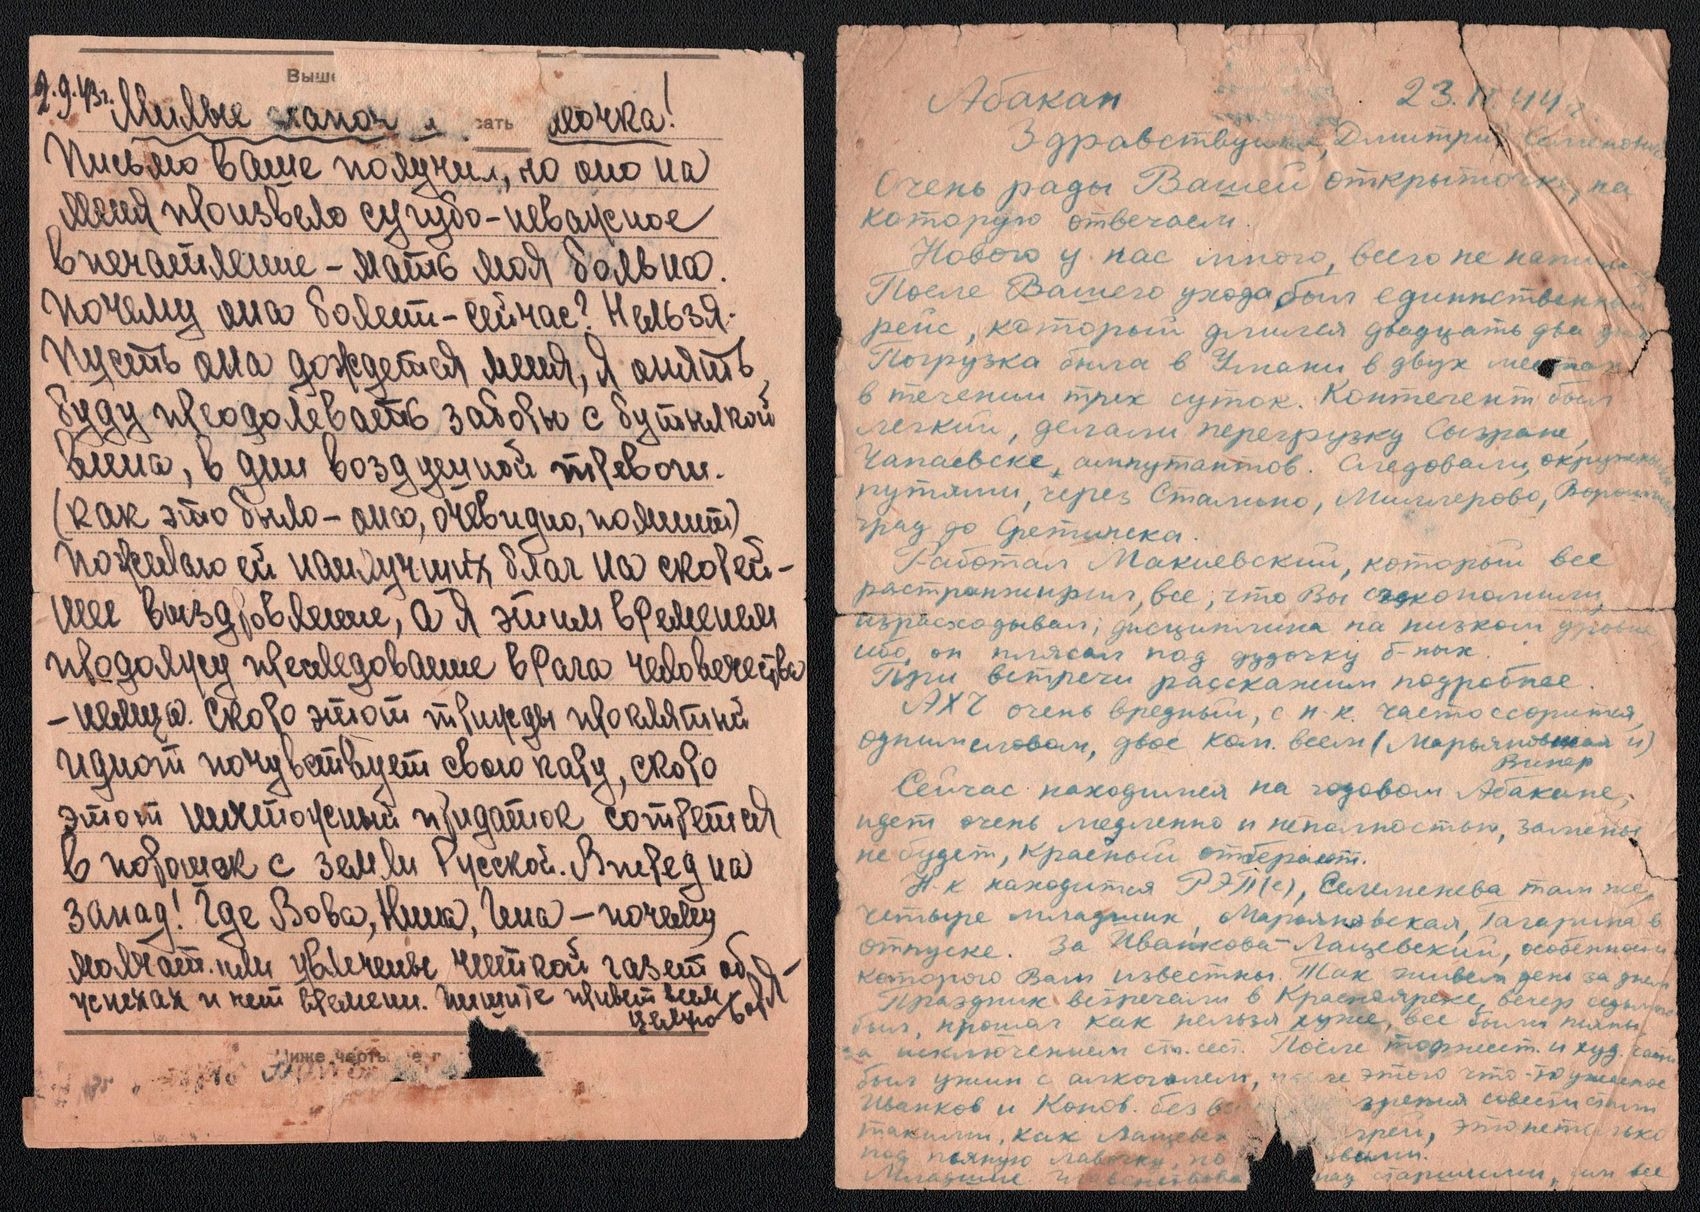 Выше
2.9.43г.
Милые папоч и мочка!
сать
Письмо ваше получил, но оно на
меня произвело сугубо-неважное
впечатление - мать моя больна.
Почему она болеет - сейчас? Нельзя.
Пусть она дождется меня, я опять
буду преодолевать заборы с бутылкой
вина, в дни воздушной тревоги.
(как это было - она, очевидно, помнит)
Пожелаю ей наилучших благ на скорей-
шее выздоровление, а я этим временем
продолжу преследование врага человечества
- немца. Скоро этот трижды проклятый
идиот почувствует свою кару, скоро
этот ничтожный придаток сотрется
в порошок с земли Русской. Вперед на
запад! Где Вова, Нина, - почему
молчат. или увлечены читкой газет об
успехах и нет времени. Пишите привет всем
целую Боря
Ниже черты не п
Абакан 23. 44г.
Здравствуйте, Дмитрий Семенович
Очень рады Вашей открыточке, на
которую отвечаем.
Нового у нас много, всего не
После Вашего ухода был единственный
рейс, который длился двадцать два дня
Погрузка была в Умани в двух местах
в течении трех суток. Контегент был
легкий, делали перегрузку Сызрани,
Чапаевске, ампутантов. Следовали, окружными
путями, через Сталино, Миллерово, Ворошилов
град до Сретинска.
Работал Макиевский, который все
растранжирил, все, что Вы сэкономили
израсходывал, дисциплина на низком уровне
ибо, он плясал под дудочку б-ных.
При встречи расскажим подробнее.
АХЧ очень вредный, с н-к. часто ссорится,
одним словом, двое ком. всем (Марьяновская и)
Винер
Сейчас находимся на годовом Абакане,
идет очень медленно и неполностью, замены
не будет, Красный отберают.
Н-к находится РЭП(с), Селеменева там же,
четыре младших, Марьяновская, Гагарина в
отпуске. За Иванкова - Лащевский, особенности
которого Вам известны. Так живем день за днем
Праздник встречали в Красноярске, вечер
был, прошел как нельзя хуже, все были пьяны
за исключением ст. сест. После торжест. и худ. части
был ужин с алкоголем, после этого что-то ужасное
Иванков и Конов. без зрения совести стали
такими, как Лащевск это не только
под пьяную лавочку, но
Младшие над старшими, им все